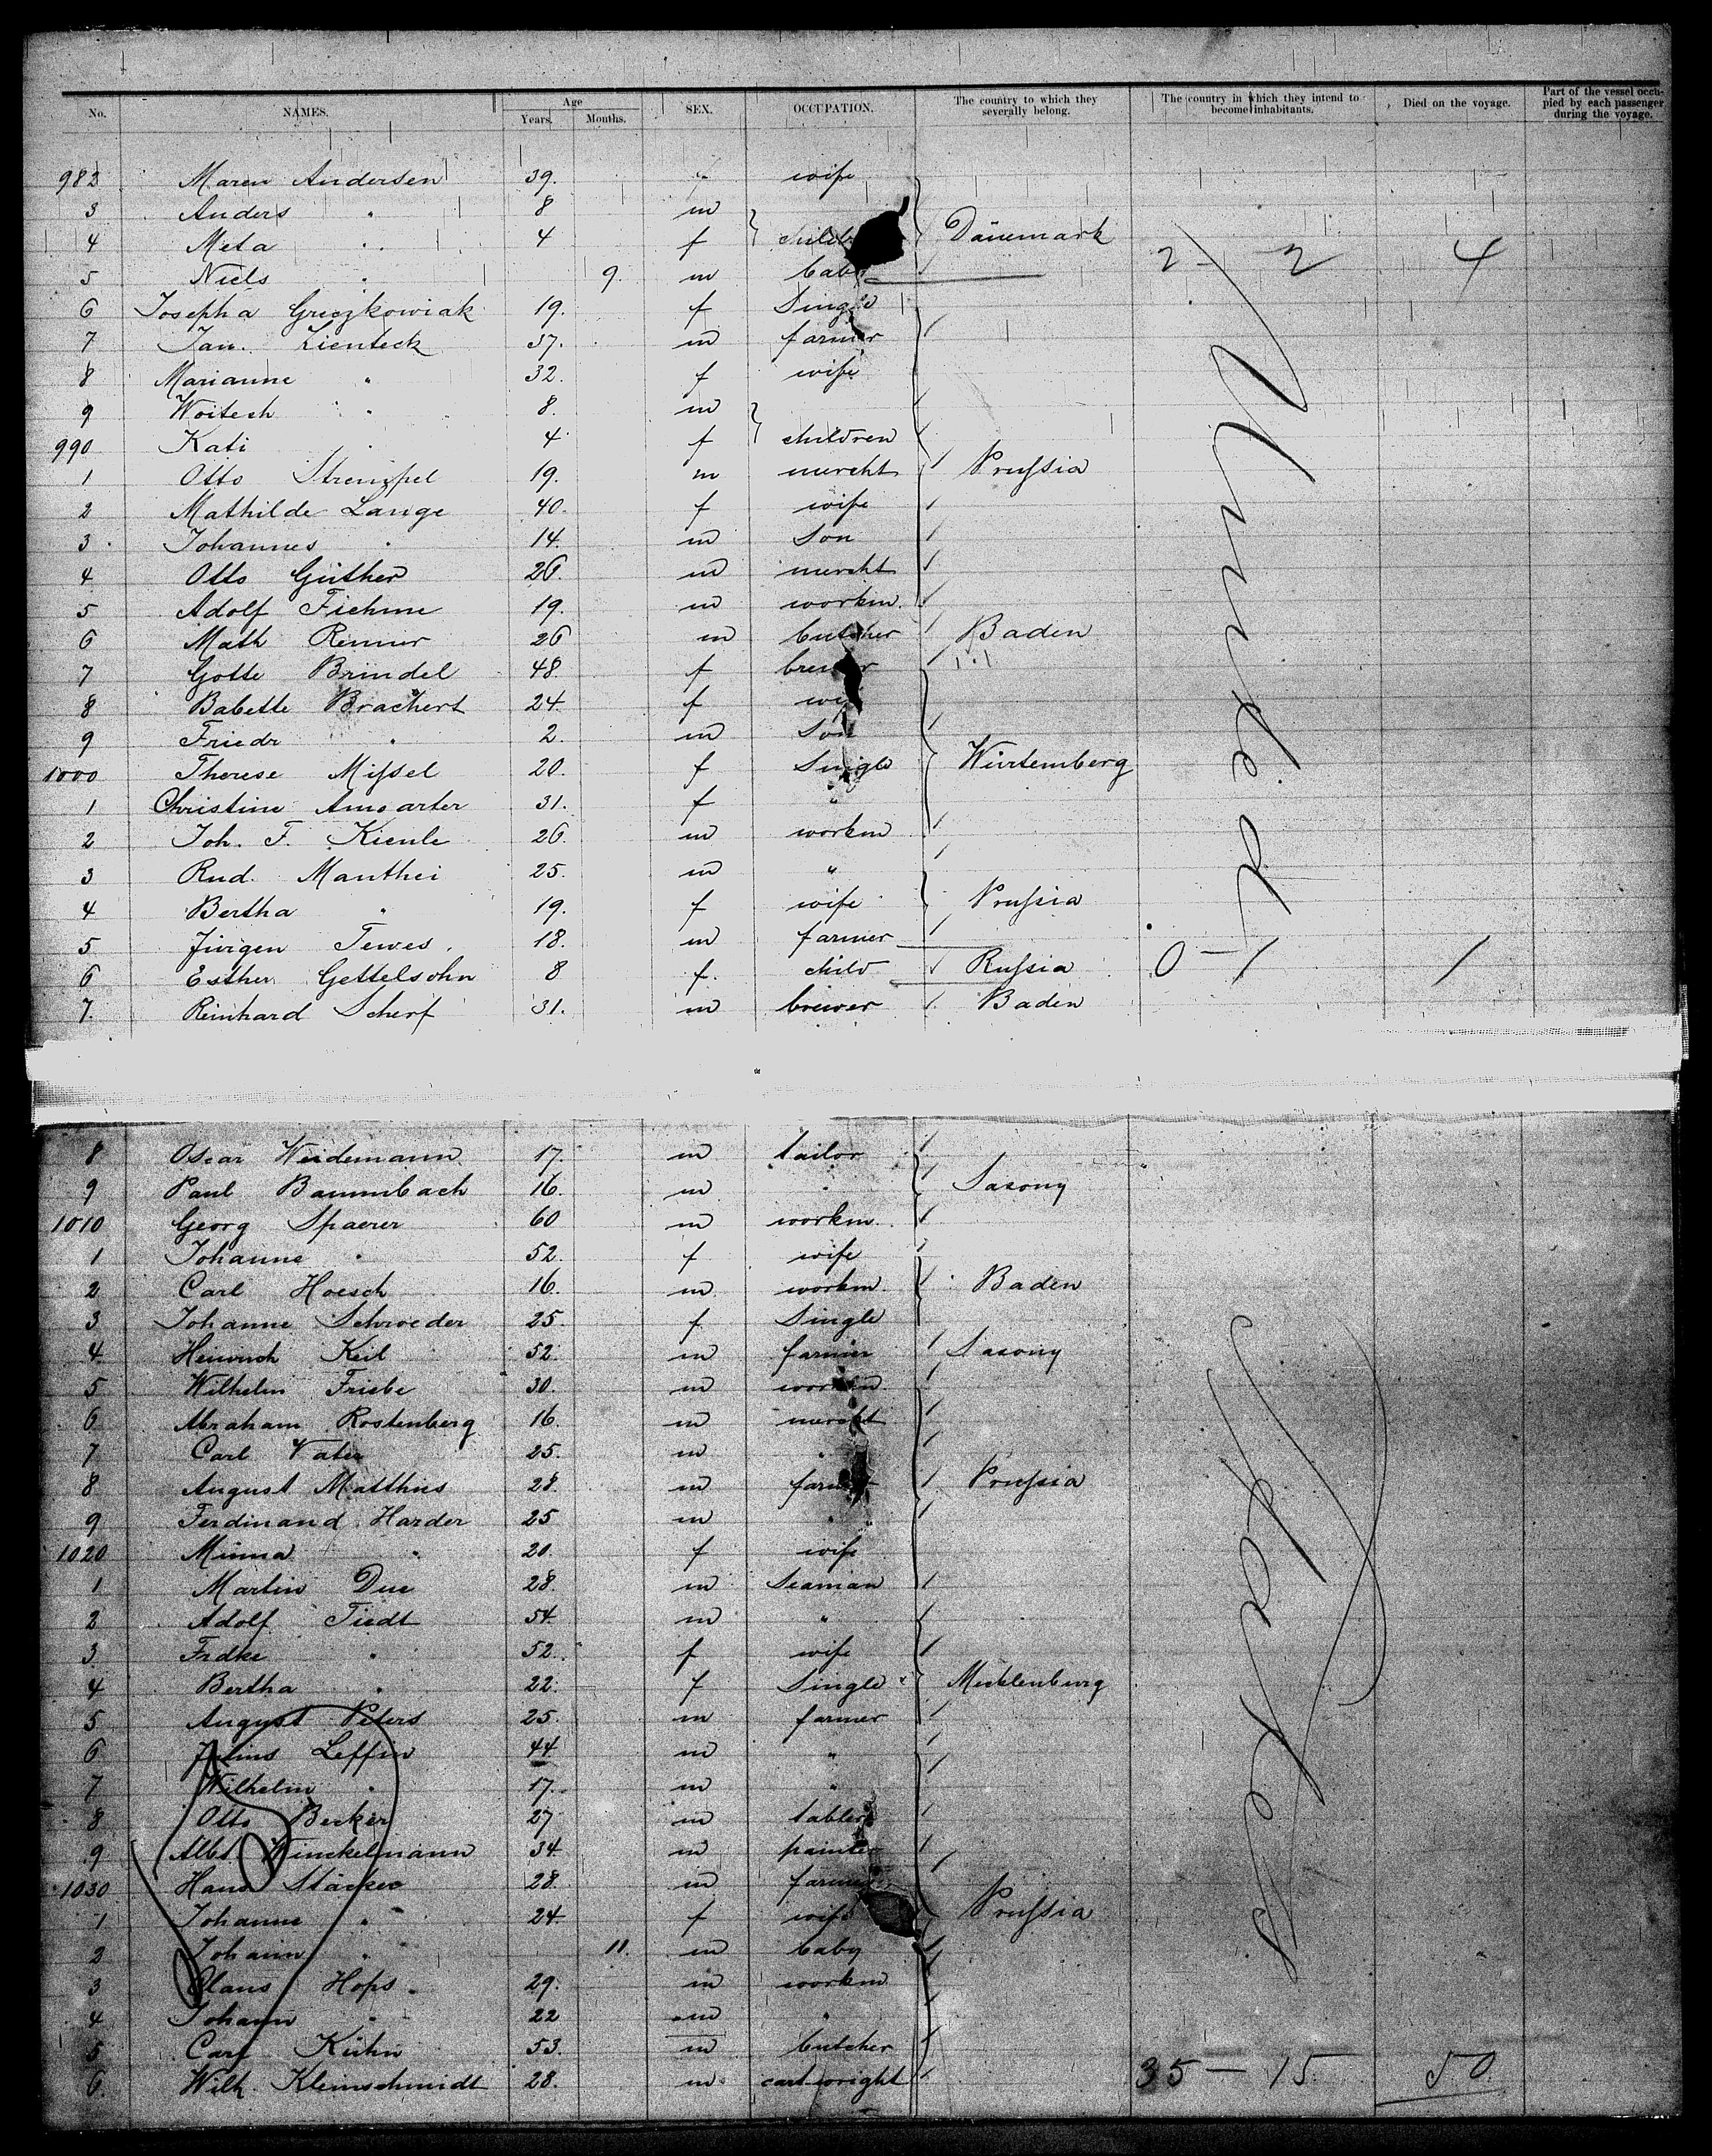 No. NAMES. Age Years. Months. SEX. OCCUPATION. The country to which they severally belong. The country in which they intend to become inhabitants. Died on the voyage. Part of the vessel occupied by each passenger during the voyage.
982 Maren Andersen 39. f wife
3 Anders " 8 m
4 Meta " 4 f Dänemark 2 - 2 4
5 Niels " 9. m baby
6 Josepha Greczkowiak 19. f Single
7 Jan. Zienteck 37. m farmer
8 Marianne " 32. f wife
9 Woitech " 8. m
990 Kati " 4 f children
1 Otto Strempel 19. m mercht Prussia
2 Mathilde Lange 40. f wife
3 Johannes " 14. m Son
4 Otto Güther 26. m mercht
5 Adolf Fiehme 19. m workm.
6 Math Renner 26 m butcher Baden
7 Gotte Brindel 48. f brewer
8 Babette Brachert 24 f wife
9 Friedr " 2. m Son
1000 Therese Missel 20. f Single Würtemberg
1 Christine 31. f "
2 Joh. F. Kienle 26. m workm
3 Rud. Manthei 25. m "
4 Bertha " 19. f wife Prussia
5 Jürgen Tewes. 18. m farmer
6 Esther Gettelsohn 8 f. child Russia 0 - 1 1
7. Reinhard Scherf 31. m brewer Baden
8 Oscar Weidemann 17. m tailor
9 Paul Baumbach 16. m " Saxony
1010 Georg Spaerer 60 m workm.
1 Johanne " 52. f wife
2 Carl Hoesch 16. m workm. Baden
3 Johanne Schroeder 25. f Single
4. Heinrich Keil 52. m farmer Saxony
5 Wilhelm Friebe 30. m workm.
6 Abraham Rostenberg 16. m mercht
7 Carl Vater 25. m "
8 August Matthus 28. m farmer Prussia
9 Ferdinand Harder 25 m "
1020 Minna " 20. f wife
1 Martin Due 28. m Seaman
2 Adolf Tiedt 54. m "
3 Frdke " 52. f wife
4 Bertha " 22. f Single Mecklenburg
5 August Peters 25. m farmer
6 Julius Leffin 44 m "
7 Wilhelm " 17. m "
8 Otto Becker 27 m tabler
9 Albt. Winckelmann 34 m painter
1030 Hans 28. m farmer
1 Johanne " 24 f wife Prussia
2 Johann " 11. m baby
3 Claus Hops. 29. m workm
4 Johann " 22 m "
5 Carl Kühn 53. m butcher
6. Wilh. Kleinschmidt 28. m. cartwright 35 - 15 50
United
States